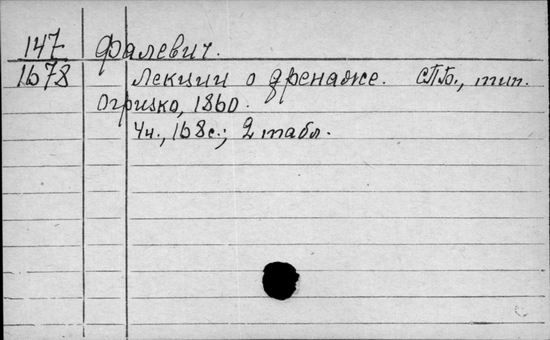 147 Фалевич.
1678 Лекции о дренаже. СПб., тип.
Огризко, 1860.
4н., 168с.; 2 табл.